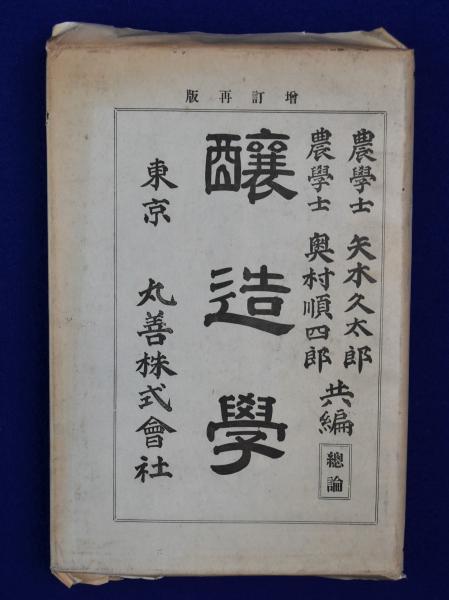 増訂再版
農學士 矢木久太郎
農學士 奥村順四郎
共編
總論
釀造學
東京 丸善株式會社